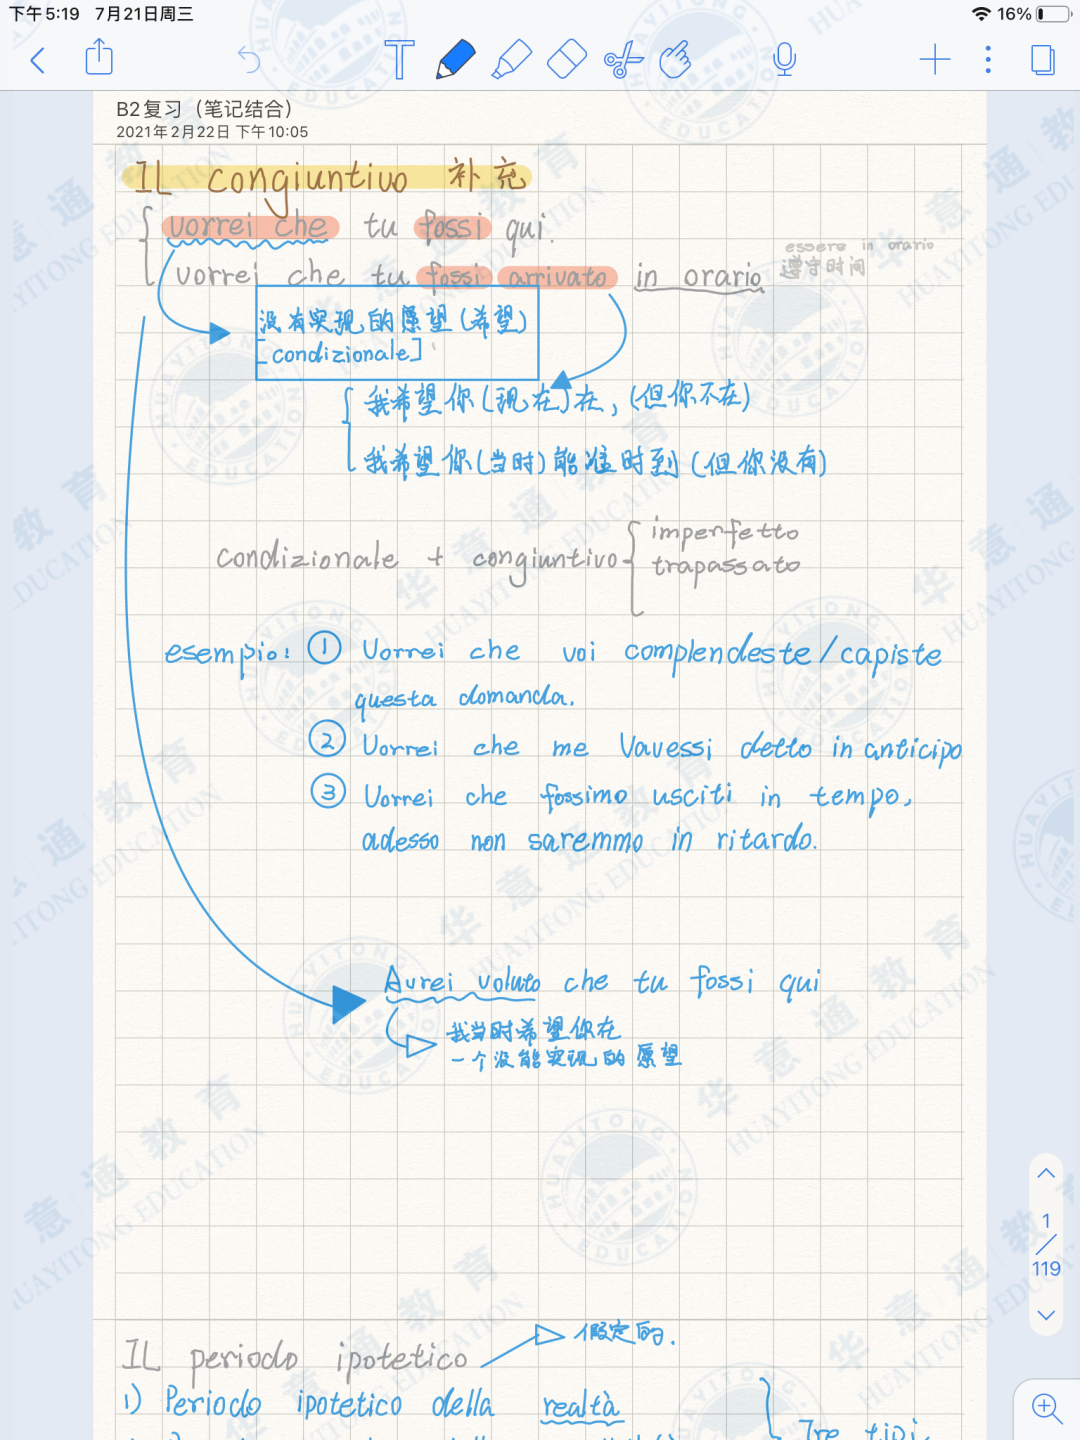 下午5:19 7月21日周三
16%
B2复习（笔记结合）
2021年2月22日 下午10:05
IL congiuntivo 补充
vorrei che tu fossi qui.
essere in orario
vorrei che tu fossi arrivato in orario 遵守时间
没有实现的愿望(希望)
[condizionale]
我希望你(现在)在, (但你不在)
我希望你(当时)能准时到(但你没有)
condizionale + congiuntivo
imperfetto
trapassato
esempio: ① Vorrei che voi complendeste/capiste
questa domanda.
② Vorrei che me Vavessi detto in anticipo
③ Vorrei che fossimo usciti in tempo,
adesso non saremmo in ritardo.
Avrei voluto che tu fossi qui
我当时希望你在
一个没能实现的愿望
1
/
119
假定的.
IL periodo ipotetico
1) Periodo ipotetico della realtà
Tre tipi
华意通教育
HUAYITONG EDUCATION